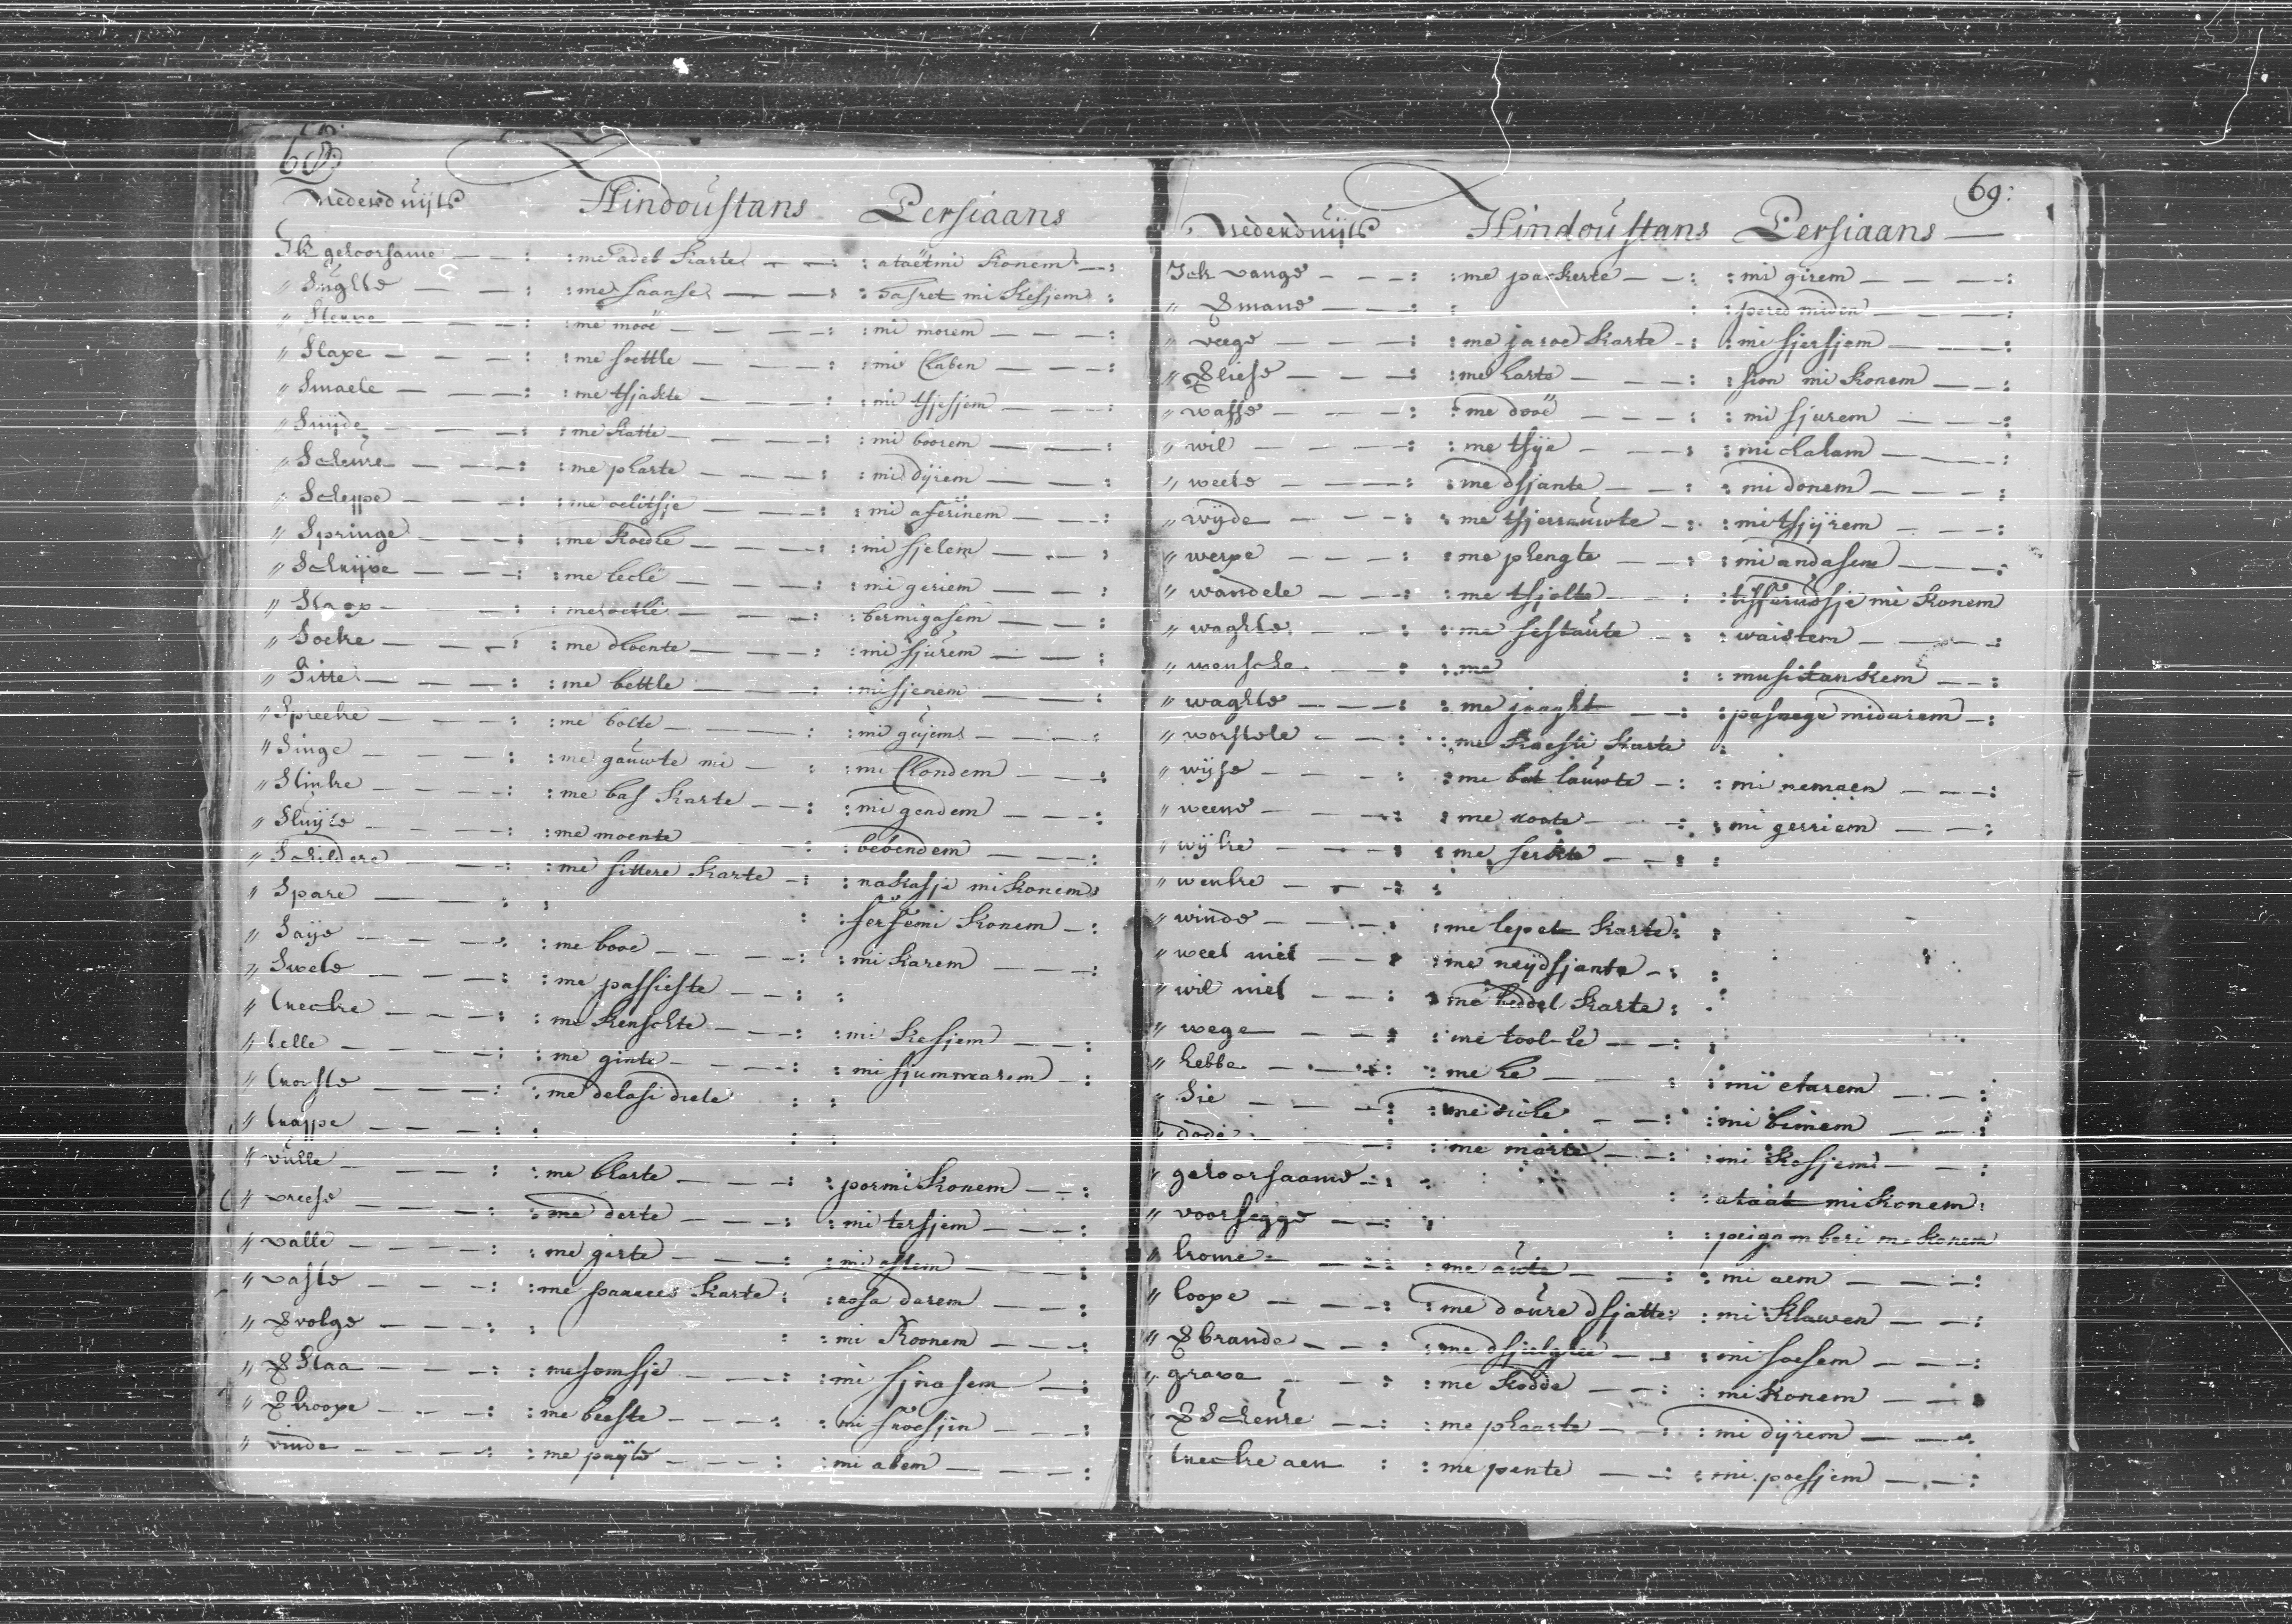 68:
Nederduijts Hindoustans Persiaans
Ik gehoorsame : me adeb karte : ataëtmi konem :
" Sugte : me saanse : hasret mi kesjem :
" Sterve : me mooë : mi morem :
" Slape : me soettle : mi Chaben :
" Smaele : me tsjakte : mi tsjesjem :
" Snijde : me katte : mi boorem :
" Scheure : me pharte : mi dijrem :
" Scheppe : me oelitsje : mi aferinem :
" Springe : me koedle : mi sjelem :
" Schrijve : me lechi : mi geriem :
" Slaap : me soetle : bermigasem :
" Soeke : me dhoente : mi sjurem :
" Sitte : me bettle : mi sjenem :
" Spreeke : me bolte : mi gujem :
" Singe : me gauwte mi : mi Chondem :
" Stinke : me bas karte : mi gendem :
" Sluijte : me moente : bebendem :
" Schildere : me sittere karte : nakasje mi konem :
" Spare : : sersemi konem :
" Saije : me booe : mi karem :
" Swete : me passieste : :
" trecke : me kenschte : mi kesjem :
" telle : me ginte : mi sjummarem :
" trooste : me delasi diete : :
" trappe : : :
" vulle : me bharte : pormi konem :
" vreese : me derte : mi tersjem :
" valle : me garte : mi astem :
" vaste : me karte : rosa darem :
" volge : : mi koonem :
" Staa : me somsje : mi sjnasem :
" kroope : me beeste : mi froesjin :
" vinde : me paijte : mi abem :
69:
Nederduijts Hindoustans Persiaans
Ick vange : me packerte : mi girem :
" : : pered miden :
" veege : me jaroe karte : mi sjersjem :
" Vliese : me harte : sion mi konem :
" wasse : me dooë : mi sjurem :
" wil : me tsije : mi chaham :
" weete : me dsjante : mi donem :
" wijde : me tsjerrauwte : mi tsjijrem :
" werpe : me phengte : mi andasem :
" wandele : me tsjolte : mi konem
" waghte : me sestaute : waistem :
" wensche : me : musitankem :
" waghte : me jnaght : midarem :
" worstele : me Koesti karte :
" wijse : me bat lauwte : mi nemaen :
" weene : me roote : mi gerriem :
" wijke : me serkte : :
" wenke : :
" winde : me lepet karte : :
" weet niet : me neijdsjante : :
" wil niet : me heddel karte : :
" wege : me tool-te : :
" hebbe : me he : mi etarem :
" Sie : me diche : mi binem :
" dode : me marte : mi kosjem :
" gehoorsaame : : ataat mi konem :
" voorsegge : : peigamberi mi konem
" kome : me aute : mi aem :
" loope : me doure dsjatte : mi klawen :
" brande : me : mi soesem :
" grave : me kodde : mi konem :
" Scheure : me phaarte : mi dijrem :
" trecke aen : me pente : mi poesjem :